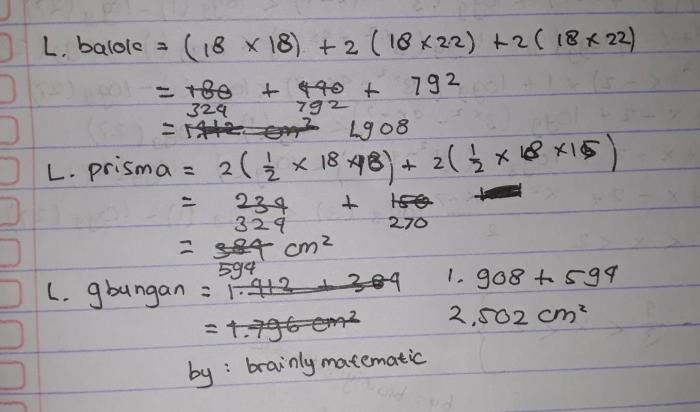 L. balok = (18 × 18) + 2 (18×22) + 2( 18 × 22)
= 180 + 440 + 792
324 792
= 1.412 cm² 1.908
L. prisma = 2(½ × 18 × 18) + 2(½ × 18 × 15)
= 234 + 150
324 270
= 384 cm²
594
L. gbungan = 1.412 + 384 1.908 + 594
= 1.796 cm² 2.502 cm²
by : brainly matematic